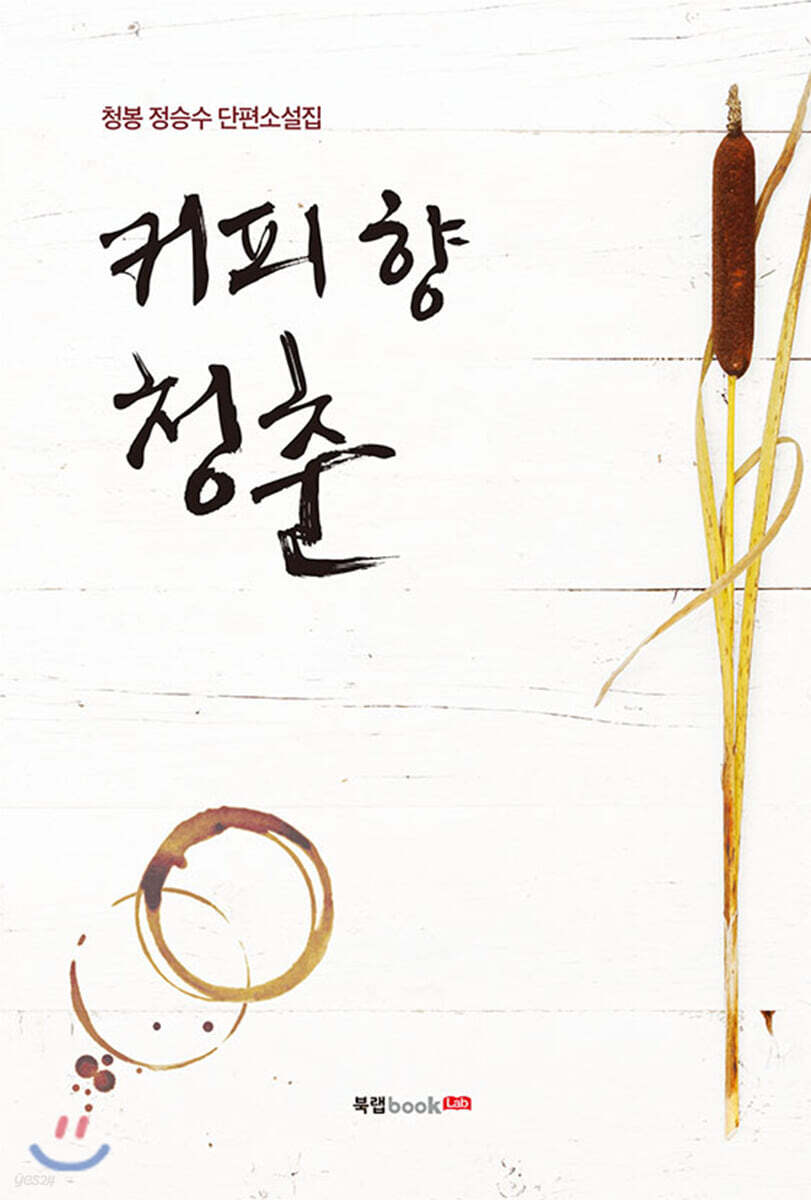 청봉 정승수 단편소설집
커피 향
청춘
북랩book Lab
yes24